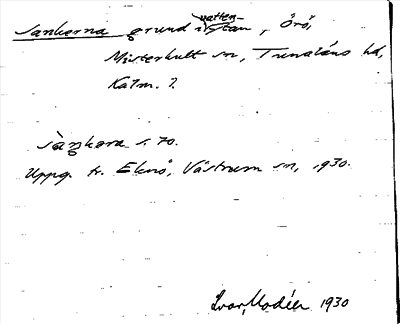 Sankorna grund i vattenytan, Örö,
Misterhult sn, Tunaläns hd,
Kalm. l.
sàŋkora s. 70.
Uppg. fr. Eknö, Västrum sn, 1930.
Ivar Modéer 1930